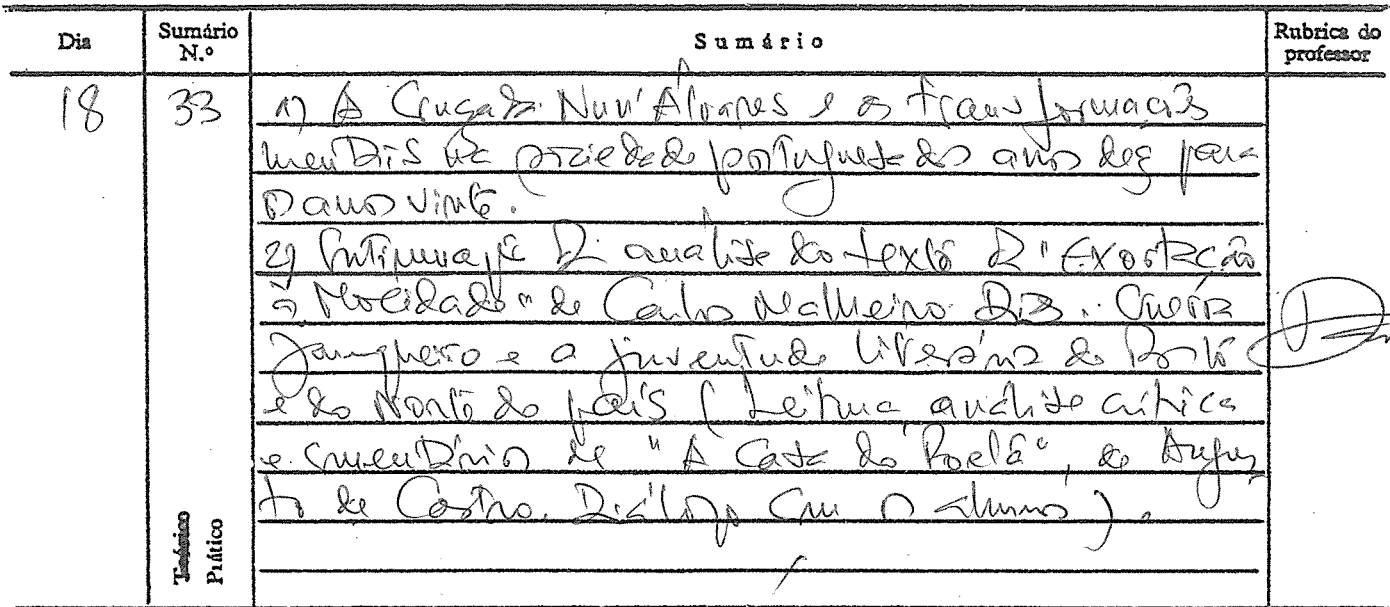 Dia Sumário N.º Sumário Rubrica do professor
18 33 1) A Cruzada Nun'Álvares e as transformações
mentais na sociedade portuguesa dos anos dez para
os anos vinte.
2) Continuação da análise do texto da "Exortação
à Mocidade" de Carlos Malheiro Dias.
Junqueiro e a juventude literária do Porto
e do Norte do país (Leitura análise crítica
e comentário de "A Casa do Poeta", de Augus
to de Castro. Diálogo com os alunos).
Teórico
Prático